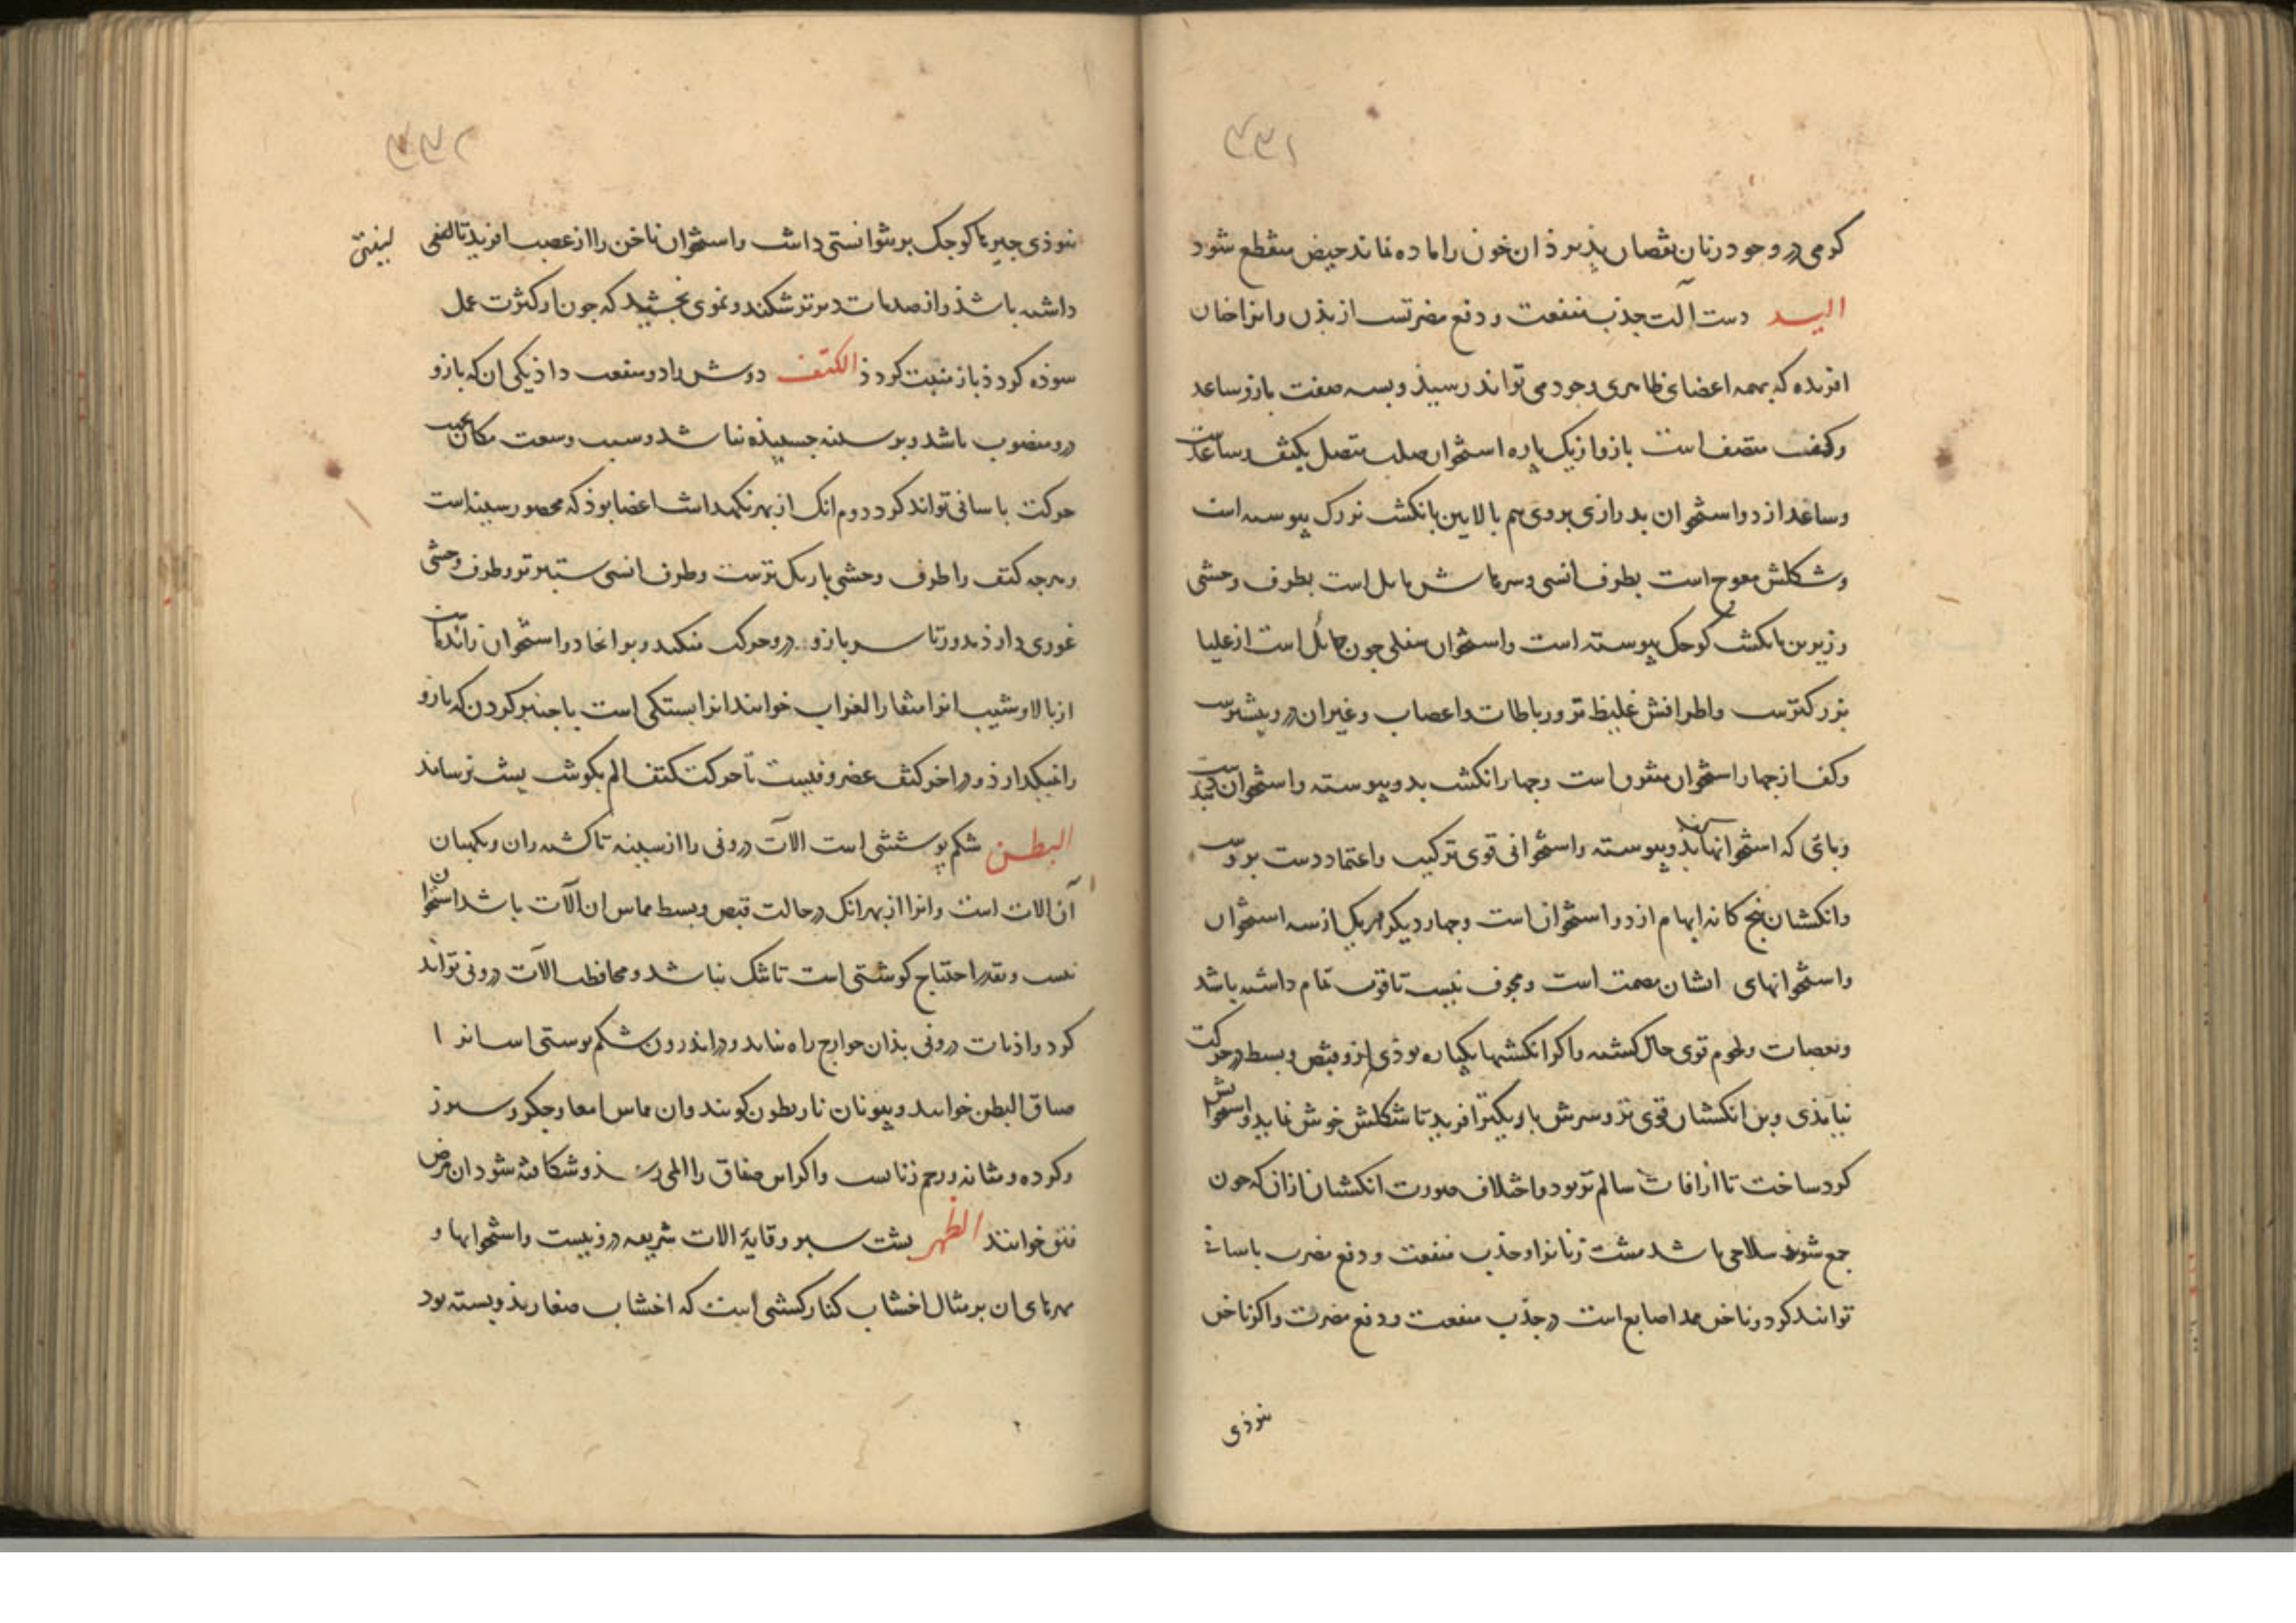 ۴۳۱
کرمی در وجود زنان نقصان پذیرد ان خون را ماده نماند حیض منقطع شود
الید دست آلت جذب منفعت و دفع مضرتست از بدن و انرا خان
افریده که بهمه اعضای ظاهری وجود می تواند رسیذ و بسه صفت بازو ساعد
وکف متصف است بازو از یک پاره استخوان صلب متصل بکتف و ساعدست
وساعد از دو استخوان بدرازی بروی هم بالایین بانکشت بزرک پیوسته است
وشکلش معوج است بطرف انسی و سرهاش مایل است بطرف وحشی
وزیرین بانکشت کوچک پیوسته است واستخوان سفلی چون حائل است از علیا
بزرکترست واطرافش غلیظ تر و رباطات واعصاب وغیران درو بیشترست
وکف از چهار استخوان متفرق است وچهار انکشت بدو پیوسته واستخوان
وبائی که استخوانها بذو پیوسته واستخوانی قوی ترکیب واعتماد دست بروست
وانکشتان پنج کانه ابهام از دو استخوان است وچهار دیکر هریک از سه استخوان
واستخوانهای ایشان مصمت است ومجوف نیست تا قوت تمام داشته باشد
وبعصبات ولحوم قوی حال کشته واکر انکشتها یکپاره بوذی ازو قبض وبسط در حرکت
نیامذی وبن انکشتان قوی تر وسرش باریکتر افرید تا شکلش خوش نماید واستخوانش
کرد ساخت تا ازافات سالم تر بود واختلاف صورت انکشتان ازان که چون
جمع شوند سلاحی باشد مشت زنانرا وجذب منفعت ودفع مضرت باسانی
توانند کرد وناخن ممد اصابع است در جذب منفعت ودفع مضرت واکر ناخن
نبوذی
۴۳۲
نبوذی چیزها کوچک برنتوانستی داشت واستخوان ناخن را از عصب افرید تا لیفی لینتی
داشته باشذ واز صدمات دیرتر شکند ونموی بخشید که چون از کثرت عمل
سوذه کردذ باز منبت کردذ الکتف دوش را دو منفعت داذ یکی ان که بازو
درو منصوب باشد وبر سینه چسبیذه نباشد وسبب وسعت مکان
حرکت باسانی تواند کرد دوم انک از بهر نکهداشت اعضا بوذ که محصور سینه است
وهرچه کتف را طرف وحشی باریک ترست وطرف انسی ستبرتر وطرف وحشی
غوری دارذ مدور تا سر بازو درو حرکت میکند وبر انجا دو استخوان زائدست
از بالا وشیب انرا منقار الغراب خوانند انرا بستکی است با چنبر کردن که بازو
را نیکدارذ ودر اخر کتف غضروفیست تا حرکت کتف الم بکوشت پشت نرساند
البطن شکم پوششی است الات درونی را از سینه تا کش ران ونکهبان
آن الات است وانرا از بهر انک در حالت قبض وبسط مماس ان آلات باشد استخوان
نیست وبقدر احتیاج کوشتی است تا تنک نباشد ومحافظت الآت درونی تواند
کرد واذیات درونی بذان خوارج راه نیابد ودر اندرون شکم پوستی است انرا
صفاق البطن خوانند ویونان ناریطون کویند وان مماس امعا وجکر وسپرز
وکرده ومثانه ورحم زنانست واکر این صفاق را المی رسذ وشکافته شود ان مرض
فتق خوانند الظهر پشت سپر وقایهٔ الات شریعه درونیست واستخوانها و
مهرهای ان بر مثال اخشاب کنار کشتی است که اخشاب صغار بذو بسته بود